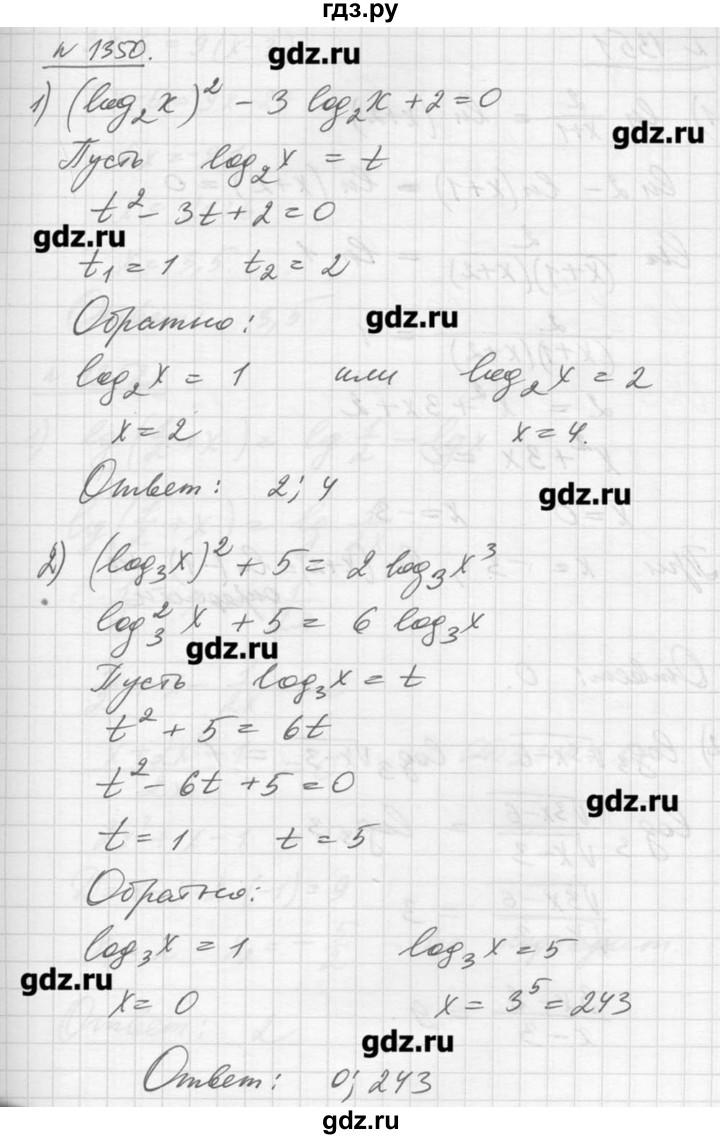 гдз.ру
№ 1350.
gdz.ru
1) (log₂x)² - 3 log₂x + 2 = 0
gdz.ru
Пусть log₂x = t
t² - 3t + 2 = 0
gdz.ru
t₁ = 1 t₂ = 2
Обратно:
gdz.ru
log₂x = 1 или log₂x = 2
x = 2 x = 4.
Ответ: 2; 4
gdz.ru
2) (log₃x)² + 5 = 2 log₃x³
log₃²x + 5 = 6 log₃x
gdz.ru
Пусть log₃x = t
t² + 5 = 6t
t² - 6t + 5 = 0
gdz.ru
t = 1 t = 5
Обратно:
log₃x = 1 log₃x = 5
gdz.ru
x = 0 x = 3⁵ = 243
gdz.ru
Ответ: 0; 243
gdz.ru